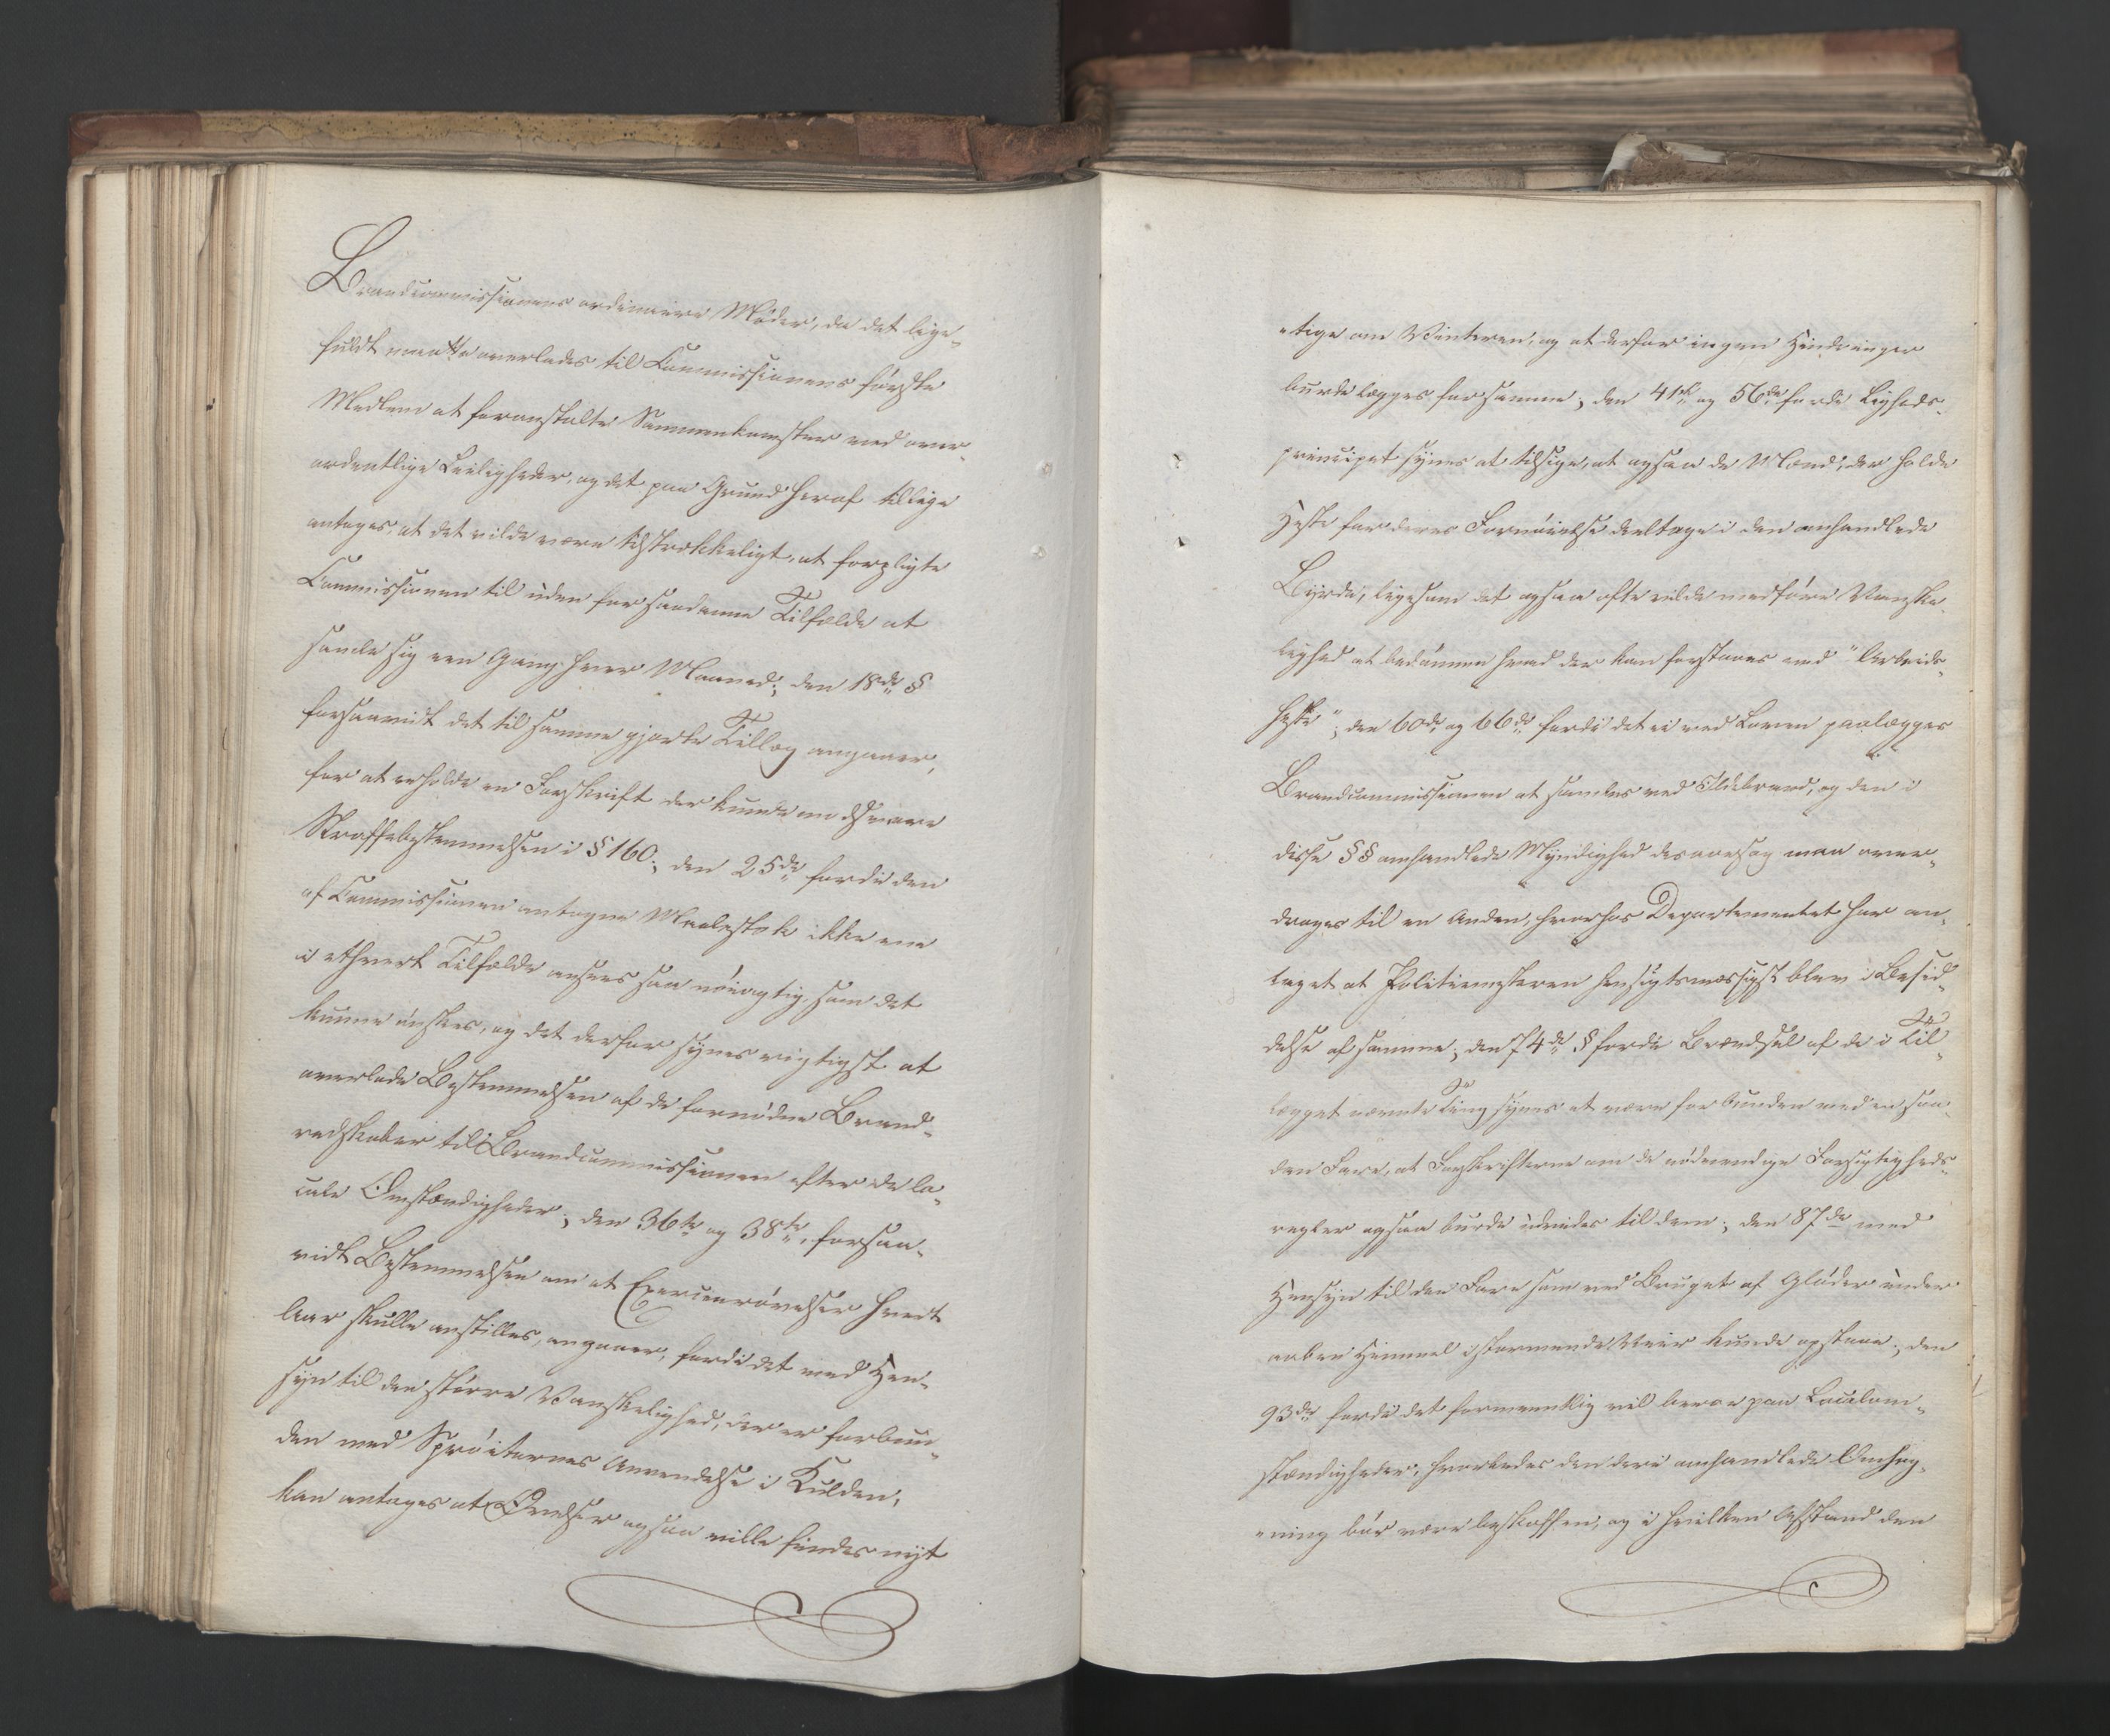 Brandcommissionens ordinaire Møder, da det lige-
fuldt maatte overlades til Commissionens første
Medlem at foranstalte Sammenkomster ved over-
ordentlige Leiligheder, og det paa Grund heraf tillige
antages, at det vilde være tilstrækkeligt, at forpligte
Commissionen til uden for saadanne Tilfælde at
samle sig een Gang hver Maaned; den 18de §
forsaavidt det til samme gjorte Tillæg angaaer,
for at erholde en Forskrift der kunde modsvare
Straffebestemmelsen i § 160; den 25de fordi den
af Commissionen antagne Maalestok ikke ene
i ethvert Tilfælde ansees saa nøiagtig, som det
kunne ønskes, og det derfor synes rigtigst at
overlade Bestemmelsen af de fornødne Brand-
redskaber til Brandcommissionen efter de lo-
cale Omstændigheder; den 36te og 38te, forsaa-
vidt Bestemmelsen om at Exerceerøvelser hvert
Aar skulle anstilles, angaaer, fordi det med Hen-
syn til den større Vanskelighed, der er forbun-
den med Sprøiternes Anvendelse i Kulden,
kan antages at Øvelser ogsaa ville findes nyt
-tige om Vinteren, og at derfor ingen Hindringer
burde lægges for samme; den 41de og 56de fordi Ligheds-
princippet synes at tilsige, at ogsaa de Mænd, der holde
Heste for deres Fornøielse deeltage i den omhandlede
Byrde, ligesom det ogsaa ofte vilde medføre Vanske-
lighed at bedømme hvad der kan forstaaes ved "Arbeids-
heste"; den 60de og 66de fordi det ei ved Loven paalægges
Brandcommissionen at samles ved Ildebrand, og den i
disse §§ omhandlede Myndighed desaarsag maa over-
drages til en Anden, hvorhos Departementet har an-
taget at Politiemesteren hensigtsmæssigst blev i Besid-
delse af samme; den 74de § fordi Brændsel af de i Til-
lægget nævnte Ting synes at være forbunden med en saa-
dan Fare, at Forskrifterne om de nødvendige Forsigtigheds-
regler ogsaa burde udvides til dem; den 87de med
Hensyn til den Fare som ved Bruget af Gløder under
aaben Himmel i stormende Veir kunde opstaae; den
93de fordi det formeentlig vil beroe paa Localom-
stændigheder, hvorledes den deri omhandlede Omheg-
-ning bør være beskaffen, og i hvilken Afstand den